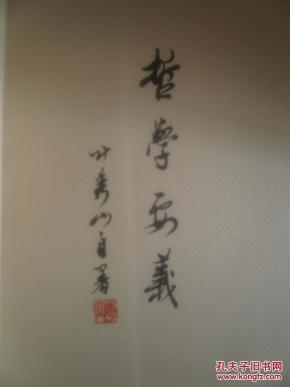 哲學要義
叶秀山自署
孔夫子旧书网
KONGFZ.COM